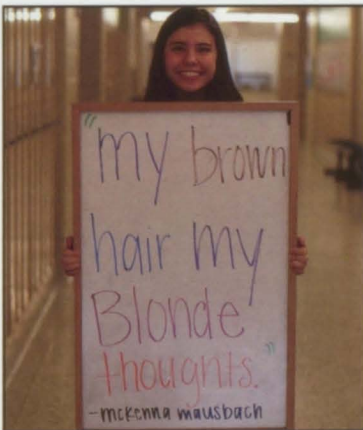 "my brown
hair my
Blonde
thoughts."
-mckenna mausbach